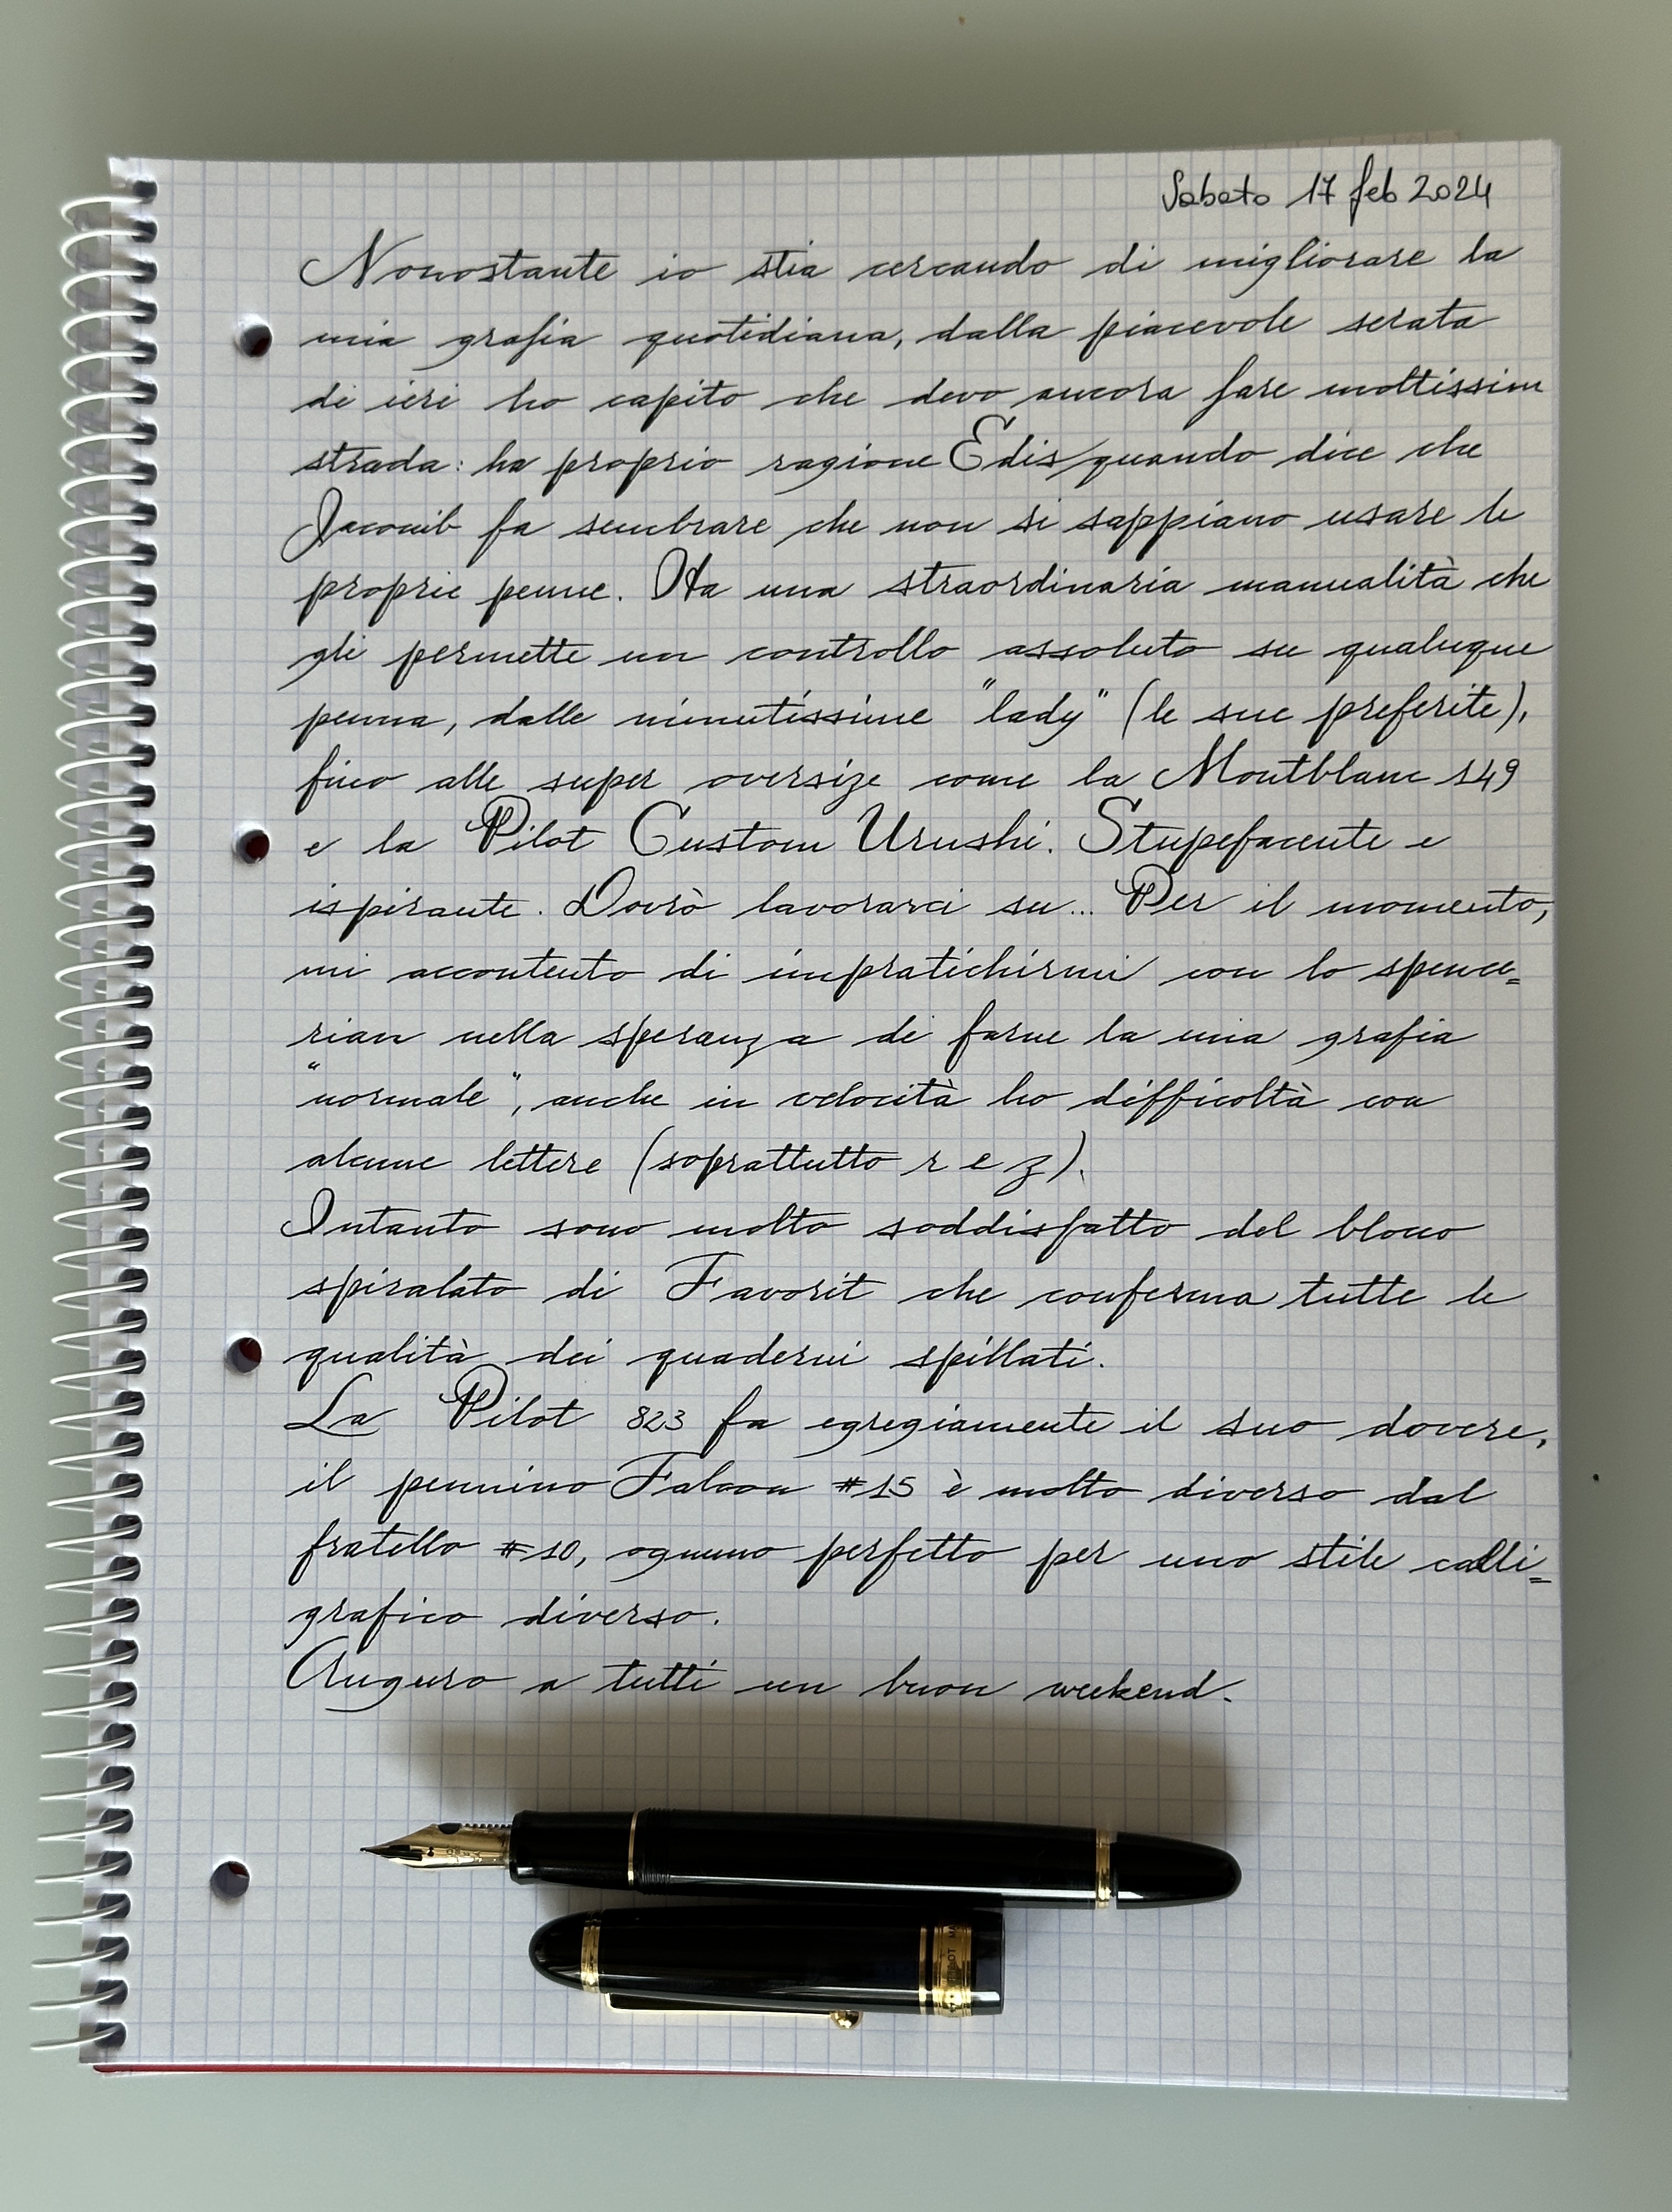 Sabato 17 feb 2024
Nonostante io stia cercando di migliorare la
mia grafia quotidiana, dalla piacevole serata
di ieri ho capito che devo ancora fare moltissim
strada: ha proprio ragione Edis quando dice che
fa sembrare che non si sappiano usare le
proprie penne. Ha una straordinaria manualità che
gli permette un controllo assoluto su qualunque
penna, dalle minutissime "lady" (le sue preferite),
fino alle super oversize come la Montblanc 149
e la Pilot Custom Urushi. Stupefacente e
ispirante. Dovrò lavorarci su... Per il momento,
mi accontento di impratichirmi con lo spence=
rian nella speranza di farne la mia grafia
"normale", anche in velocità ho difficoltà con
alcune lettere (soprattutto r e z).
Intanto sono molto soddisfatto del blocco
spiralato di Favorit che conferma tutte le
qualità dei quaderni spillati.
La Pilot 823 fa egregiamente il suo dovere,
il pennino Falcon #15 è molto diverso dal
fratello #10, ognuno perfetto per uno stile calli=
grafico diverso.
Auguro a tutti un buon weekend.